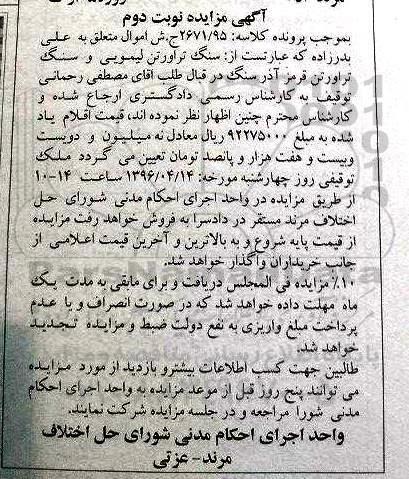 آگهی مزایده نوبت دوم
بموجب پرونده کلاسه: ۲۶۷۱/۹۵ج.ش اموال متعلق به علی
بدرزاده که عبارتست از: سنگ تراورتن لیمویی و سنگ
تراورتن قرمز آذر سنگ در قبال طلب آقای مصطفی رحمانی
توقیف به کارشناس رسمی دادگستری ارجاع شده و
کارشناس محترم چنین اظهار نظر نموده اند، قیمت اقلام یاد
شده به مبلغ ۹۲۲۷۵۰۰۰ ریال معادل نه میلیون و دویست
وبیست و هفت هزار و پانصد تومان تعیین می گردد ملک
توقیفی روز چهارشنبه مورخه: ۱۳۹۶/۰۴/۱۴ ساعت ۱۴-۱۰
از طریق مزایده در واحد اجرای احکام مدنی شورای حل
اختلاف مرند مستقر در دادسرا به فروش خواهد رفت مزایده
از قیمت پایه شروع و به بالاترین و آخرین قیمت اعلامی از
جانب خریداران واگذار خواهد شد.
۱۰٪ مزایده فی المجلس دریافت و برای مابقی به مدت یک
ماه مهلت داده خواهد شد که در صورت انصراف و یا عدم
پرداخت مبلغ واریزی به نفع دولت ضبط و مزایده تجدید
خواهد شد.
طالبین جهت کسب اطلاعات بیشترو بازدید از مورد مزایده
می توانند پنج روز قبل از موعد مزایده به واحد اجرای احکام
مدنی شورا مراجعه و در جلسه مزایده شرکت نمایند.
واحد اجرای احکام مدنی شورای حل اختلاف
مرند- عزتی